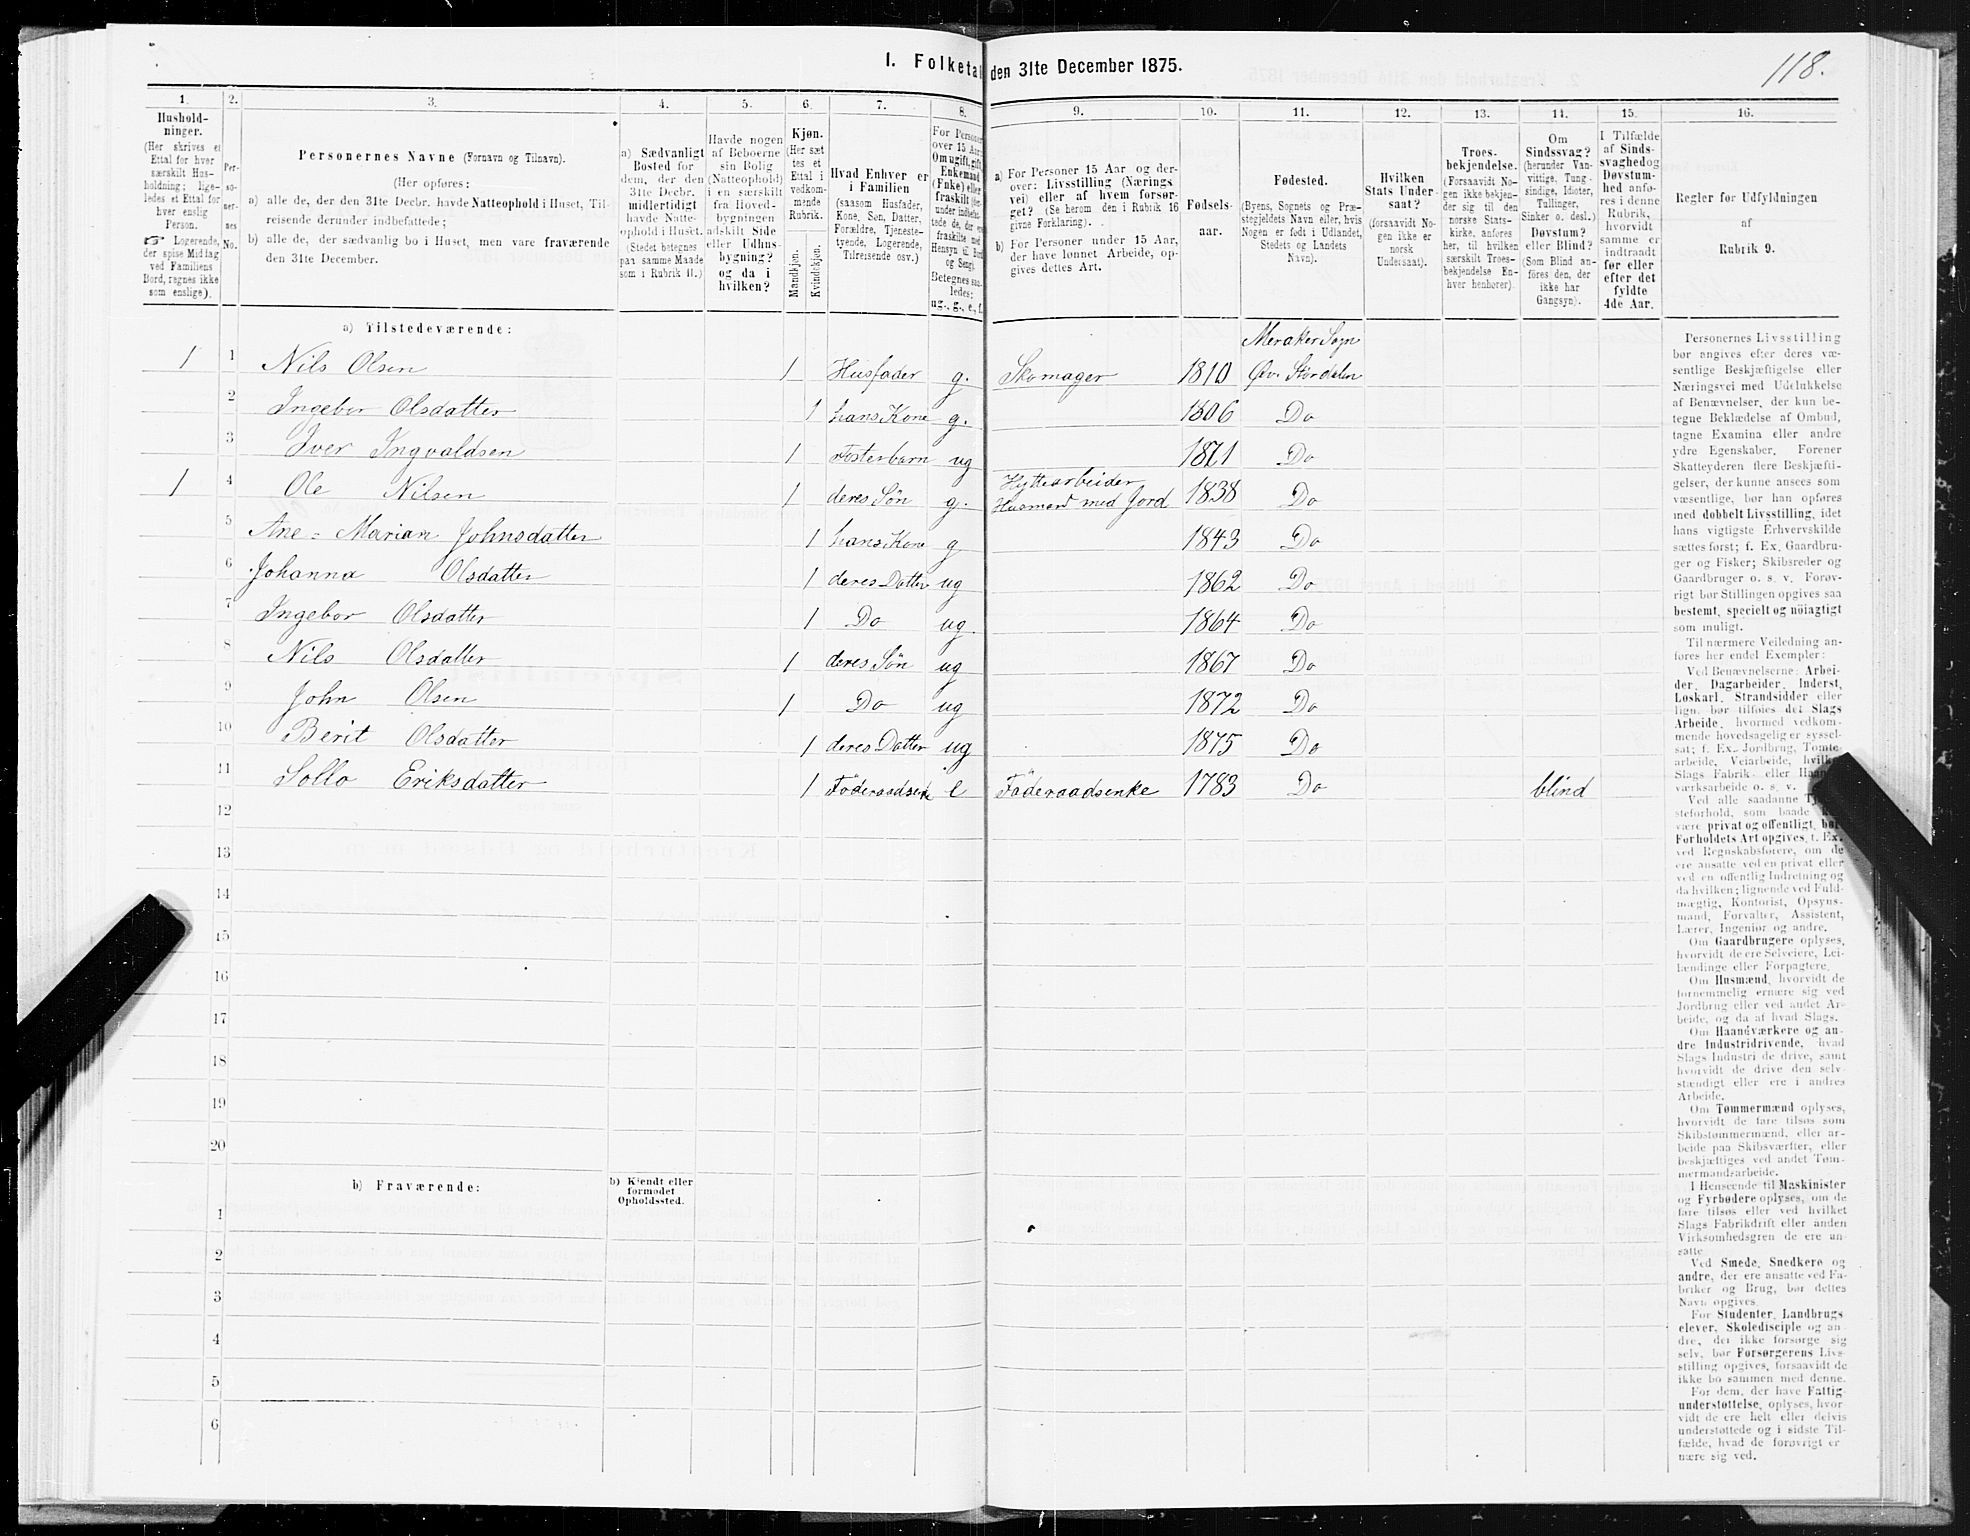 118.
I. Folketal den 31te December 1875.
1. 2. 3. 4. 5. 6. 7. 8. 9. 10. 11. 12. 13. 14. 15. 16.
Hushold-
ninger.
(Her skrives et
Ettal for hver
særskilt Hus-
holdning; lige-
ledes et Ettal for
hver enslig
Person.
☞ Logerende,
der spise Middag
ved Familiens
Bord, regnes ikke
som enslige).
Per-
so-
ner-
nes
No.
Personernes Navne (Fornavn og Tilnavn).
(Her opføres:
a) alle de, der den 31te Decbr. havde Natteophold i Huset, Til-
reisende derunder indbefattede;
b) alle de, der sædvanlig bo i Huset, men vare fraværende
den 31te December.
a) Sædvanligt
Bosted for
dem, der den
31te Decbr.
midlertidigt
havde Natte-
ophold i Huset.
(Stedet betegnes
paa samme Maade
som i Rubrik 11.)
Havde nogen
af Beboerne
sin Bolig
(Natteophold)
i en særskilt
fra Hoved-
bygningen
adskilt Side
eller Udhus-
bygning?
og da i
hvilken?
Kjøn.
(Her sæt
tes et
Ettal i
vedkom-
mende
Rubrik.
Mandkjøn.
Kvindekjøn.
Hvad Enhver er
i Familien
(saasom Husfader,
Kone, Søn, Datter,
Forældre, Tjeneste-
tyende, Logerende,
Tilreisende osv.)
For Personer
over 15 Aar:
Om ugift, gift,
Enkemand
(Enke) eller
fraskilt
Betegnes saa-
ledes:
ug., g., e., f.
a) For Personer 15 Aar og der-
over: Livsstilling (Nærings
vei) eller af hvem forsør-
get? (Se herom den i Rubrik 16
givne Forklaring).
b) For Personer under 15 Aar,
der have lønnet Arbeide, op-
gives dettes Art.
Fødsels-
aar.
Fødested.
(Byens, Sognets og Præ-
stegjeldets Navn eller, hvis
Nogen er født i Udlandet,
Stedets og Landets
Navn).
Hvilken
Stats Under-
saat?
(forsaavidt No-
gen ikke er
norsk
Undersaat).
Troes-
bekjendelse.
(Forsaavidt No-
gen ikke bekjen-
der sig til den
norske Stats-
kirke, anføres
her, til hvilken
særskilt Troes-
bekjendelse En-
hver henhører).
Om
Sindssvag?
(herunder Van-
vittige, Tung-
sindige, Idioter,
Tullinger,
Sinker o. desl.)
Døvstum?
eller Blind?
(Som Blind an-
føres den, der
ikke har
Gangsyn).
I Tilfælde
af Sinds-
svaghed og
Døvstum-
hed anfø-
res i denne
Rubrik,
hvorvidt
samme er
indtraadt
før eller
efter det
fyldte
4de Aar.
Regler før Udfyldningen
af
Rubrik 9.
a) Tilstedeværende:
Meraker Sogn
1 1 Nils Olsen 1 Husfader g. Skomager 1810 Øv. Stördalen
2 Ingebor Olsdatter 1 hans Kone g. 1806 Do
3 Iver Ingvaldsen 1 Fosterbarn ug 1871 Do
Hyttearbeider
1 4 Ole Nilsen 1 deres Sön g. Husmand med Jord 1838 Do
5 Ane-Marian Johnsdatter 1 hans Kone g 1843 Do
6 Johanna Olsdatter 1 deres Datter ug 1862 Do
7 Ingebor Olsdatter 1 Do ug. 1864 Do
8 Nils Olsdatter 1 deres Sön ug 1867 Do
9 John Olsen 1 Do ug 1872 Do
10 Berit Olsdatter 1 deres Datter ug 1875 Do
11 Sollo Eriksdatter 1 Föderaadsenk e Föderaadsenke 1783 Do blind
12
13
14
15
16
17
18
19
20
b) Fraværende:
b) Kjendt eller
formodet
Opholdssted.
1
2
3
4
5
6
Personernes Livsstilling
bør angives efter deres væ-
sentlige Beskjæftigelse eller
Næringsvei med Udelukkelse
af Benævnelser, der kun be-
tegne Beklædelse af Ombud,
tagne Examina eller andre
ydre Egenskaber. Forener
Skatteyderen flere Beskjæfti-
gelser, der kunne ansees som
væsentlige, bør han opføres
med dobbelt Livsstilling, idet
hans vigtigste Erhvervskilde
sættes først; f. Ex. Gaardbru-
ger og Fisker; Skibsreder og
Gaardbruger o. s. v. Forøv-
rigt bør Stillingen opgives saa
bestemt, specielt og nöiagtigt
som muligt.
Til nærmere Veiledning an-
føres her endel Exempler:
Ved Benævnelserne: Arbei-
der, Dagarbeider, Inderst,
Løskarl, Strandsidder eller
lign. bør tilføies det Slags
Arbeide, hvormed vedkom-
mende hovedsagelig er syssel-
sat; f. Ex. Jordbrug, Tomte-
arbeide, Veiarbeide, hvilket
Slags Fabrik- eller
værksarbeide o. s. v.
Ved alle saadanne
steforhold, som baade
være privat og offentligt, bør
Forholdets Art opgives, f. Ex.
ved Regnskabsførere, om de
ere ansatte ved en privat eller
ved en offentlig Indretning og
da hvilken; lignende ved Fuld-
mægtig, Kontorist, Opsyns-
mand, Forvalter, Assistent,
Lærer, Ingeniør og andre.
Om Gaardbrugere oplyses,
hvorvidt de ere Selveiere, Lei-
lændinge eller Forpagtere.
Om Husmænd, hvorvidt de
fornemmelig ernære sig ved
Jordbrug eller ved andet Ar-
beide, og da af hvad Slags.
Om Haandværkere og an-
dre Industridrivende, hvad
Slags Industri de drive, samt
hvorvidt de drive den selv-
stændigt eller ere i andres
Arbeide.
Om Tømmermænd oplyses,
hvorvidt de fare tilsøs som
Skibstømmermænd, eller ar-
beide paa Skibsværfter, eller
beskjæftiges ved andet Tøm-
mermandsarbeide.
I Henseende til Maskinister
og Fyrbødere oplyses, om de
fare tilsøs eller ved hvilket
Slags Fabrikdrift eller anden
Virksomhedsgren de ere an-
satte
Ved Smede, Snedkere og
andre, der ere ansatte ved Fa-
briker og Brug, bør dettes
Navn opgives
For Studenter, Landbrugs
elever, Skoledisciple og an-
dre, der ikke forsørge sig
selv, bør Forsørgerens Livs-
stilling opgives, forsaavidt de
ikke bo sammen med denne.
For dem, der have Fattig-
understøttelse, oplyses, hvor-
vidt de ere helt eller delvis
understøttede og i sidste Til-
fælde, hvad de forøvrigt er-
nære sig ved.